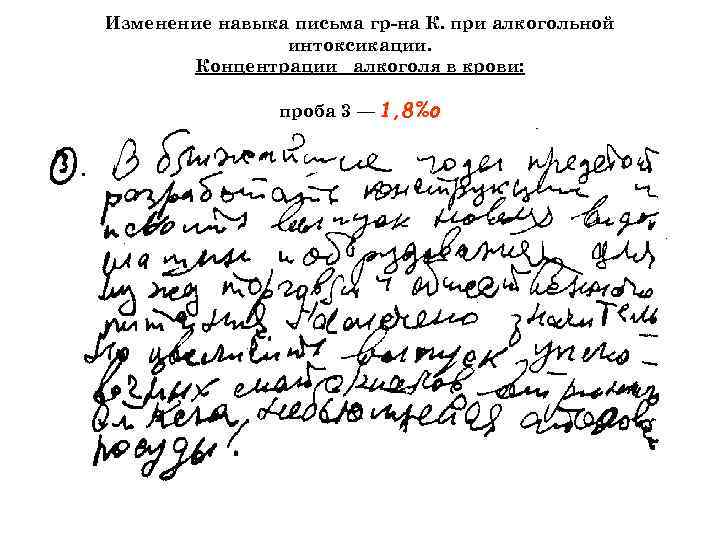 Изменение навыка письма гр-на К. при алкогольной
интоксикации.
Концентрации алкоголя в крови:
проба 3 — 1,8%о
3. В ближайшие годы предстой
разработать конструкции и
освоить выпуск новых видо
машин и оборудования для
нужд торговли и общественного
питания. Намечено значитель
но увеличить выпуск упако-
вочных материалов
посуды.